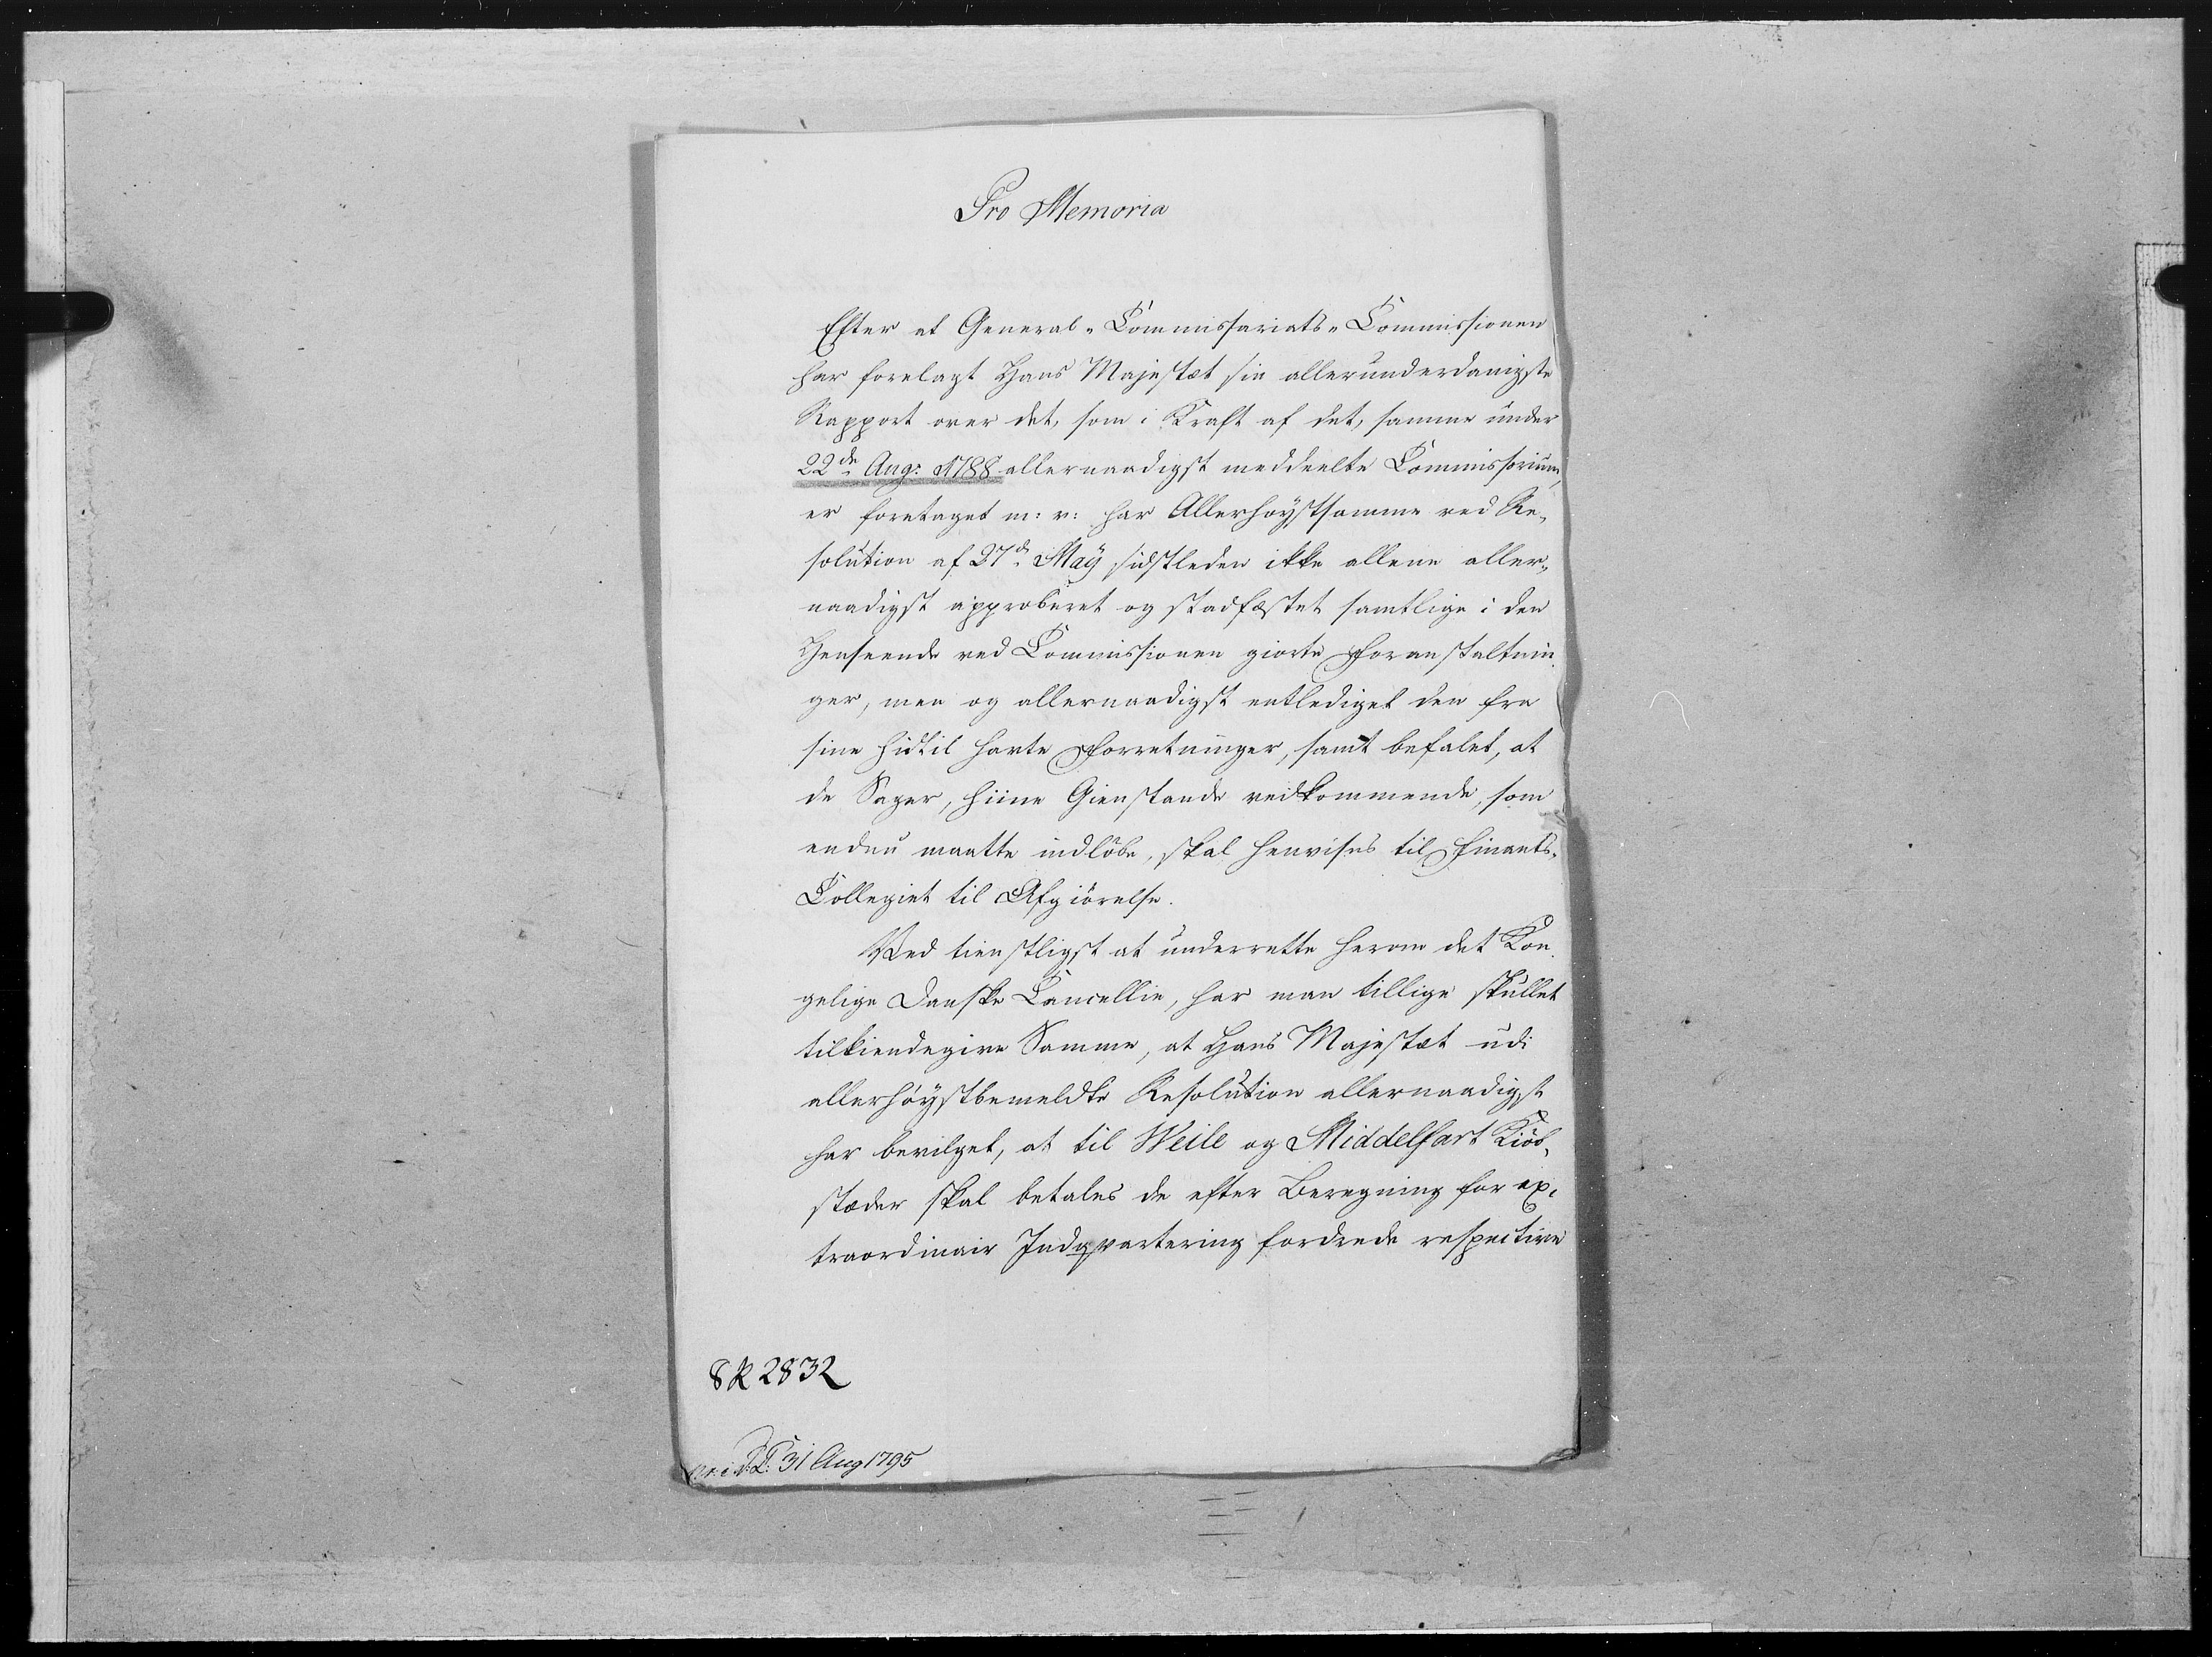 Pro Memoria
Efter at General-Commissariats-Commissionen
har forelagt Hans Majestæt sin allerunderdanigste
Rapport over det, som i Kraft af det, samme under
22de Aug: 1788 allernaadigst meddeelte Commissorium,
er foretaget m: v: har Allerhøystsamme ved Re-
solution af 27de May sidstleden ikke allene aller-
naadigst approberet og stadfæstet samtlige i den
Henseende ved Commissionen giorte Foranstaltnin-
ger, men og allernaadigst entlediget den fra
sine hidtil havte Forretninger, samt befalet, at
de Sager, hiine Gienstande vedkommende, som
endnu maatte indløbe, skal henvises til Finants-
Collegiet til Afgiörelse.
Ved tienstligst at underrette herom det Kon-
gelige Danske Cancellie, har man tillige skullet
tilkiendegive Samme, at Hans Majestæt udi
allerhöystbemeldte Resolution allernaadigst
har bevilget, at til Weile og Middelfart Kiöb-
stæder skal betales de efter Beregning for ex-
traordinair Indqvartering fordrede respective
SR 2832
31 Aug 1795